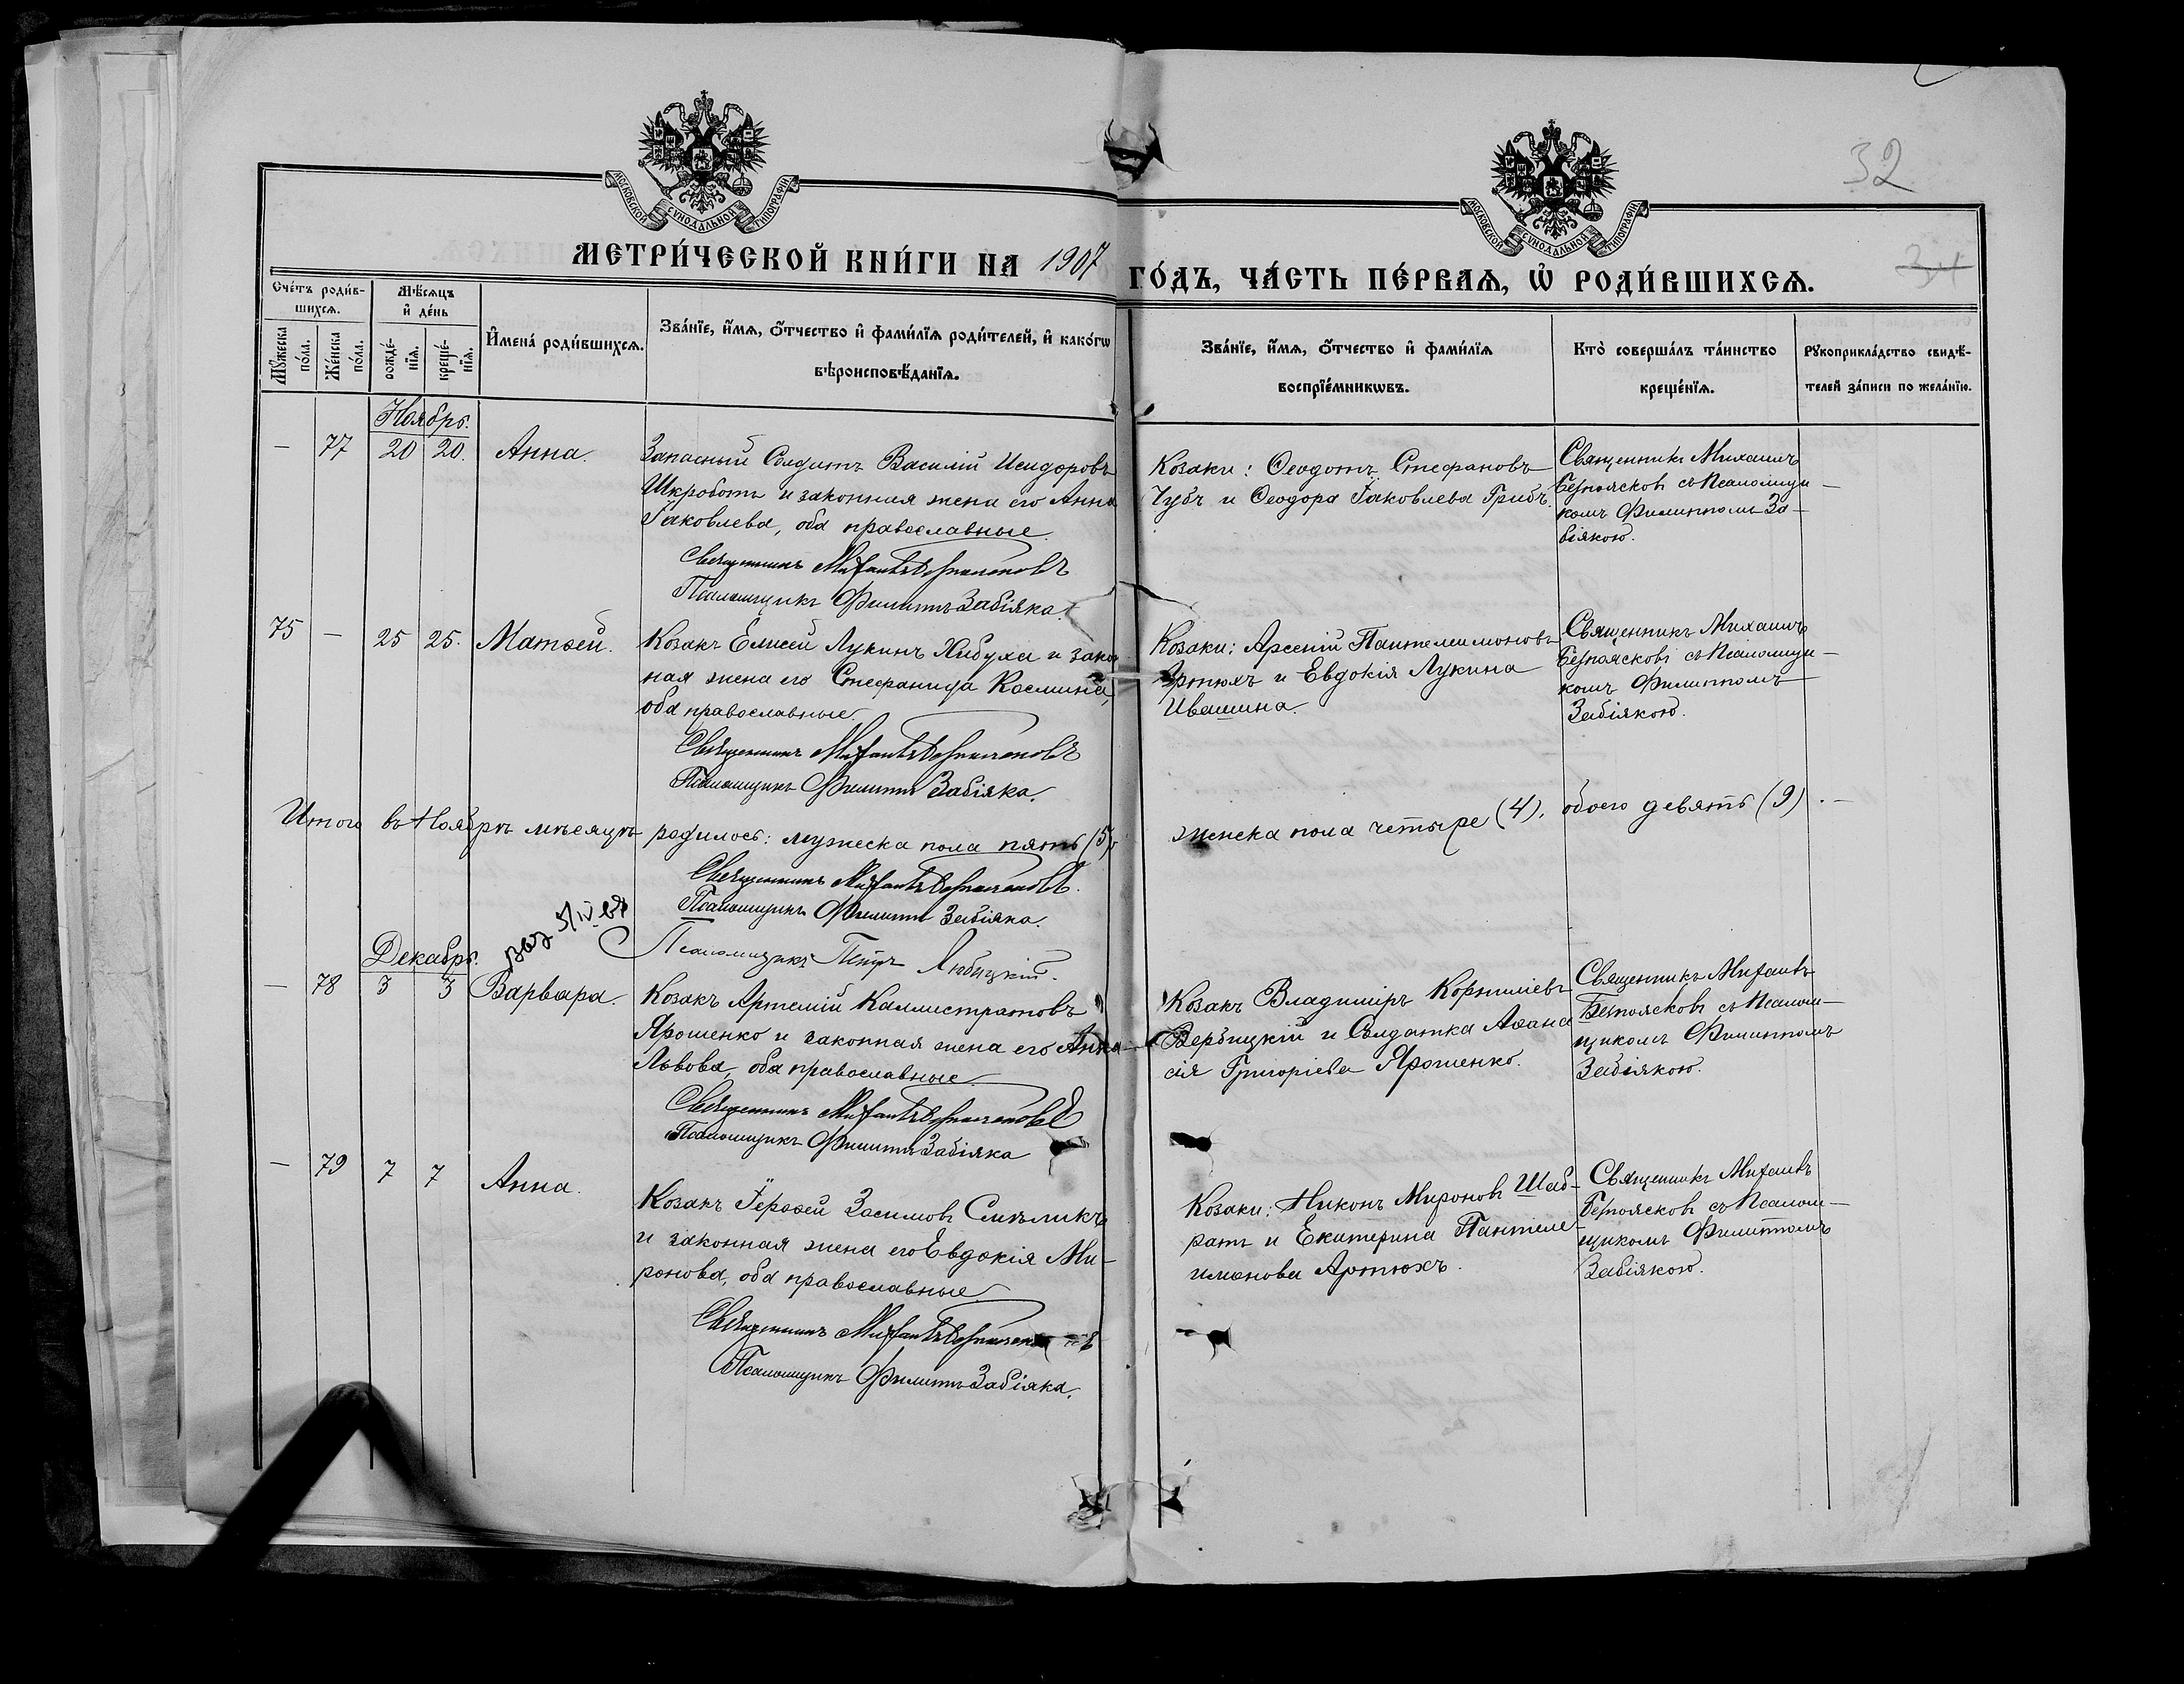 32
34
МОСКОВСКОЙ СѴНОДАЛЬНОЙ ТИПОГРАФІИ
МОСКОВСКОЙ СѴНОДАЛЬНОЙ ТИПОГРАФІИ
МЕТРИ́ЧЕСКОЙ КНИ́ГИ НА 1907 ГО́ДЪ, ЧА́СТЬ ПЕ́РВАѦ, Ѡ҆ РОДИ́ВШИХСѦ.
Сче́тъ роди́в-
шихсѧ.
Мѣ́сѧцъ
и҆ де́нь
Мꙋ́жеска
по́ла.
Же́нска
по́ла.
рожде́-
нїѧ.
креще́-
нїѧ.
И҆мена̀ роди́вшихсѧ.
Зва́нїе, и҆́мѧ, ѻ҆́тчество и҆ фами́лїѧ роди́телей, и҆ како́гѡ
вѣроисповѣ́данїѧ.
Зва́нїе, и҆́мѧ, ѻ҆́тчество и҆ фами́лїѧ
воспрїе́мникѡвъ.
Кто̀ соверша́лъ та́инство
креще́нїѧ.
Рꙋкоприкла́дство свидѣ́-
телей за́писи по жела́нїю.
Ноябрь.
— 77 20 20. Анна.
Запасный Солдатъ Василій Исидоровъ
Шкроботъ и законная жена его Анна
Іаковлева, оба православные.
Священникъ Михаилъ Безпоясковъ
Псаломщикъ Филиппъ Забіяка.
Козаки: Ѳеодотъ Стефановъ
Чубъ и Ѳеодора Іаковлева Грибъ.
Священникъ Михаилъ
Безпоясковъ съ Псаломщи-
комъ Филиппомъ За-
біякою.
75 — 25 25. Матѳей.
Козакъ Елисей Лукинъ Хибуха и закон
ная жена его Стефанида Космина,
оба православные.
Священникъ Михаилъ Безпоясковъ
Псаломщикъ Филиппъ Забіяка.
Козаки: Арсеній Пантелеимоновъ
Артюхъ и Евдокія Лукина
Ивашина.
Священникъ Михаилъ
Безпоясковъ съ Псаломщи-
комъ Филиппомъ
Забіякою.
Итого въ Ноябрѣ мѣсяцѣ родилось: мужеска пола пять (5), женска пола четыре (4), обоего девять (9). —
Священникъ Михаилъ Безпоясковъ.
Псаломщикъ Филиппъ Забіяка.
Псаломщикъ Петръ
Декабрь.
— 78 3 3 Варвара.
Козакъ Артемій Каллистратовъ
Ярошенко и законная жена его Анна
Львова, оба православные.
Священникъ Михаилъ Безпоясковъ
Псаломщикъ Филиппъ Забіяка
Козакъ Владиміръ Корниліевъ
Вербицкій и Солдатка Аѳана
сія Григоріева Ярошенко.
Священникъ Михаилъ
Безпоясковъ съ Псалом-
щикомъ Филиппомъ
Забіякою.
— 79 7 7 Анна.
Козакъ Іероѳей Зосимовъ Смѣликъ
и законная жена его Евдокія Ми-
ронова, оба православные
Священникъ Михаилъ Безпоясковъ
Псаломщикъ Филиппъ Забіяка.
Козаки: Никонъ Мироновъ Шаб-
ратъ и Екатерина Пантеле-
имонова Артюхъ.
Священникъ Михаилъ
Безпоясковъ съ Псалом-
щикомъ Филиппомъ
Забіякою.